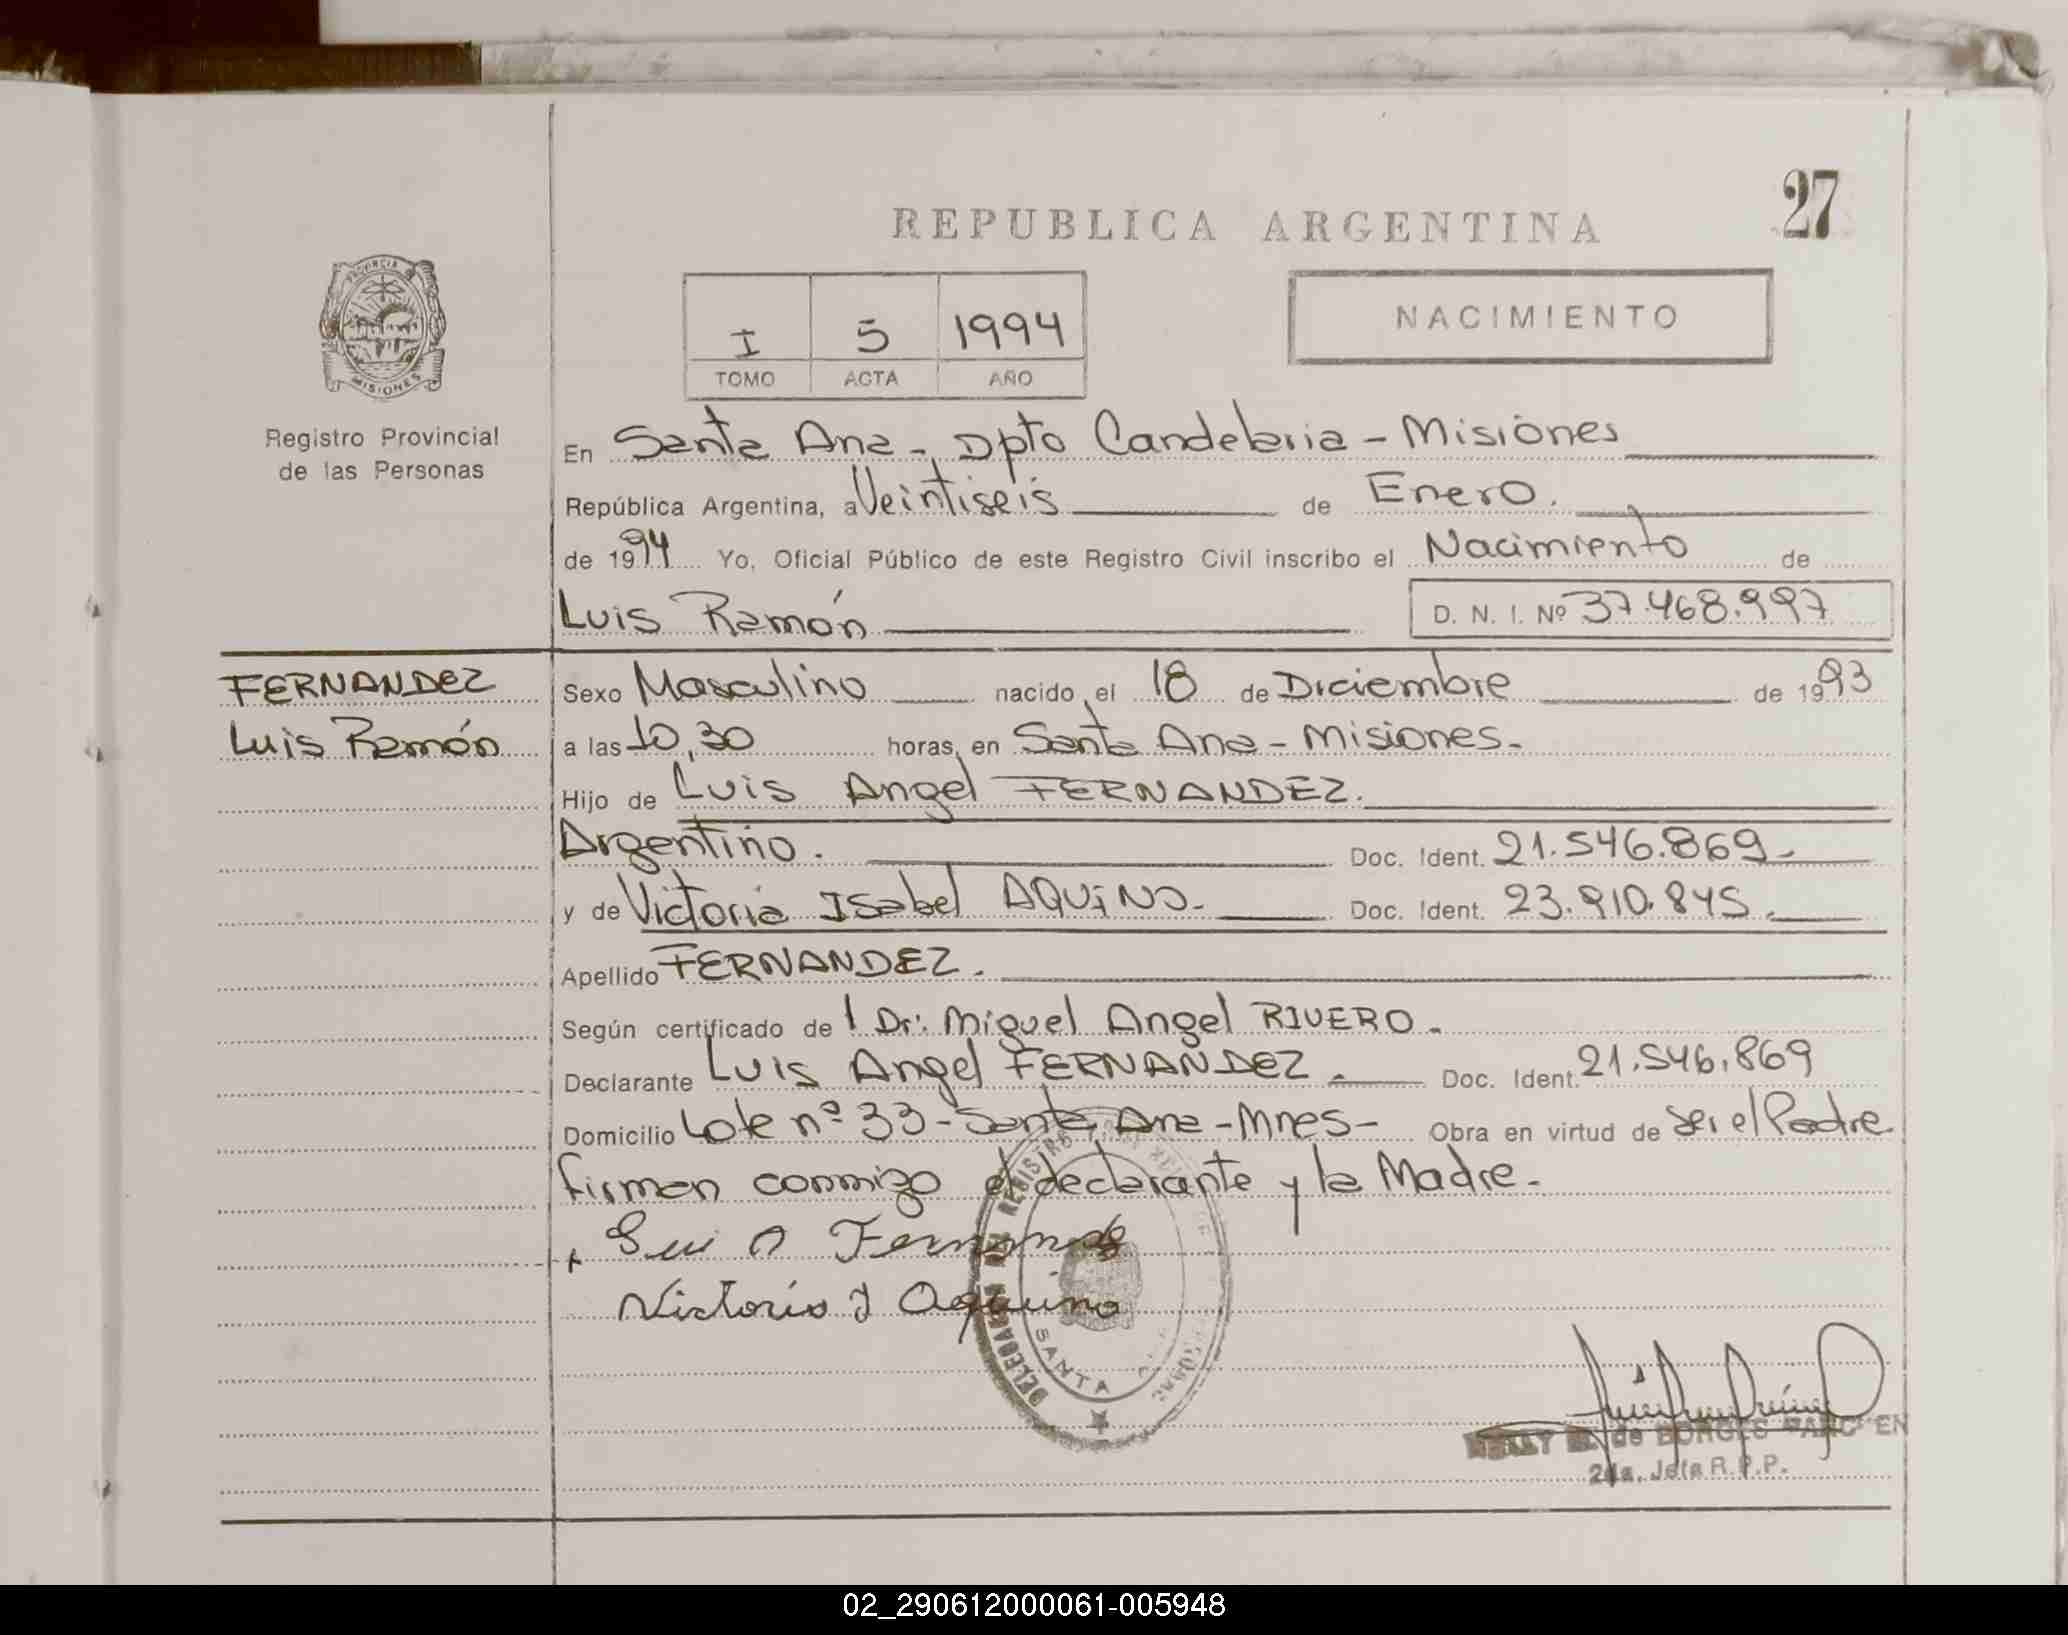 27
REPUBLICA ARGENTINA
PROVINCIA
MISIONES
Registro Provincial
de las Personas
I 5 1994
TOMO ACTA AÑO
NACIMIENTO
En Santa Ana -, Dpto Candelaria - Misiones
República Argentina, a Veintiseis de Enero.
de 1994 Yo, Oficial Público de este Registro Civil inscribo el Nacimiento de
Luis Ramón D. N. I. Nº 37.468.997
FERNANDEZ
Luis Ramón
Sexo Masculino nacido el 18 de Diciembre de 1993
a las 10,30 horas, en Santa Ana - Misiones.
Hijo de Luis Angel FERNANDEZ.
Argentino. Doc. Ident. 21.546.869.
y de Victoria Isabel AQUINO. Doc. Ident. 23.910.845.
Apellido FERNANDEZ.
Según certificado de l Dr: Miguel Angel RIVERO.
Declarante Luis Angel FERNANDEZ. Doc. Ident. 21.546.869
Domicilio Lote nº 33 - Santa Ana - Mnes - Obra en virtud de ser el Padre
firman conmigo el declarante y la Madre.
Luis A Fernandez
Victoria I Aquino
SANTA
de BORGES
2da. Jefa R.P.P.
02_290612000061-005948